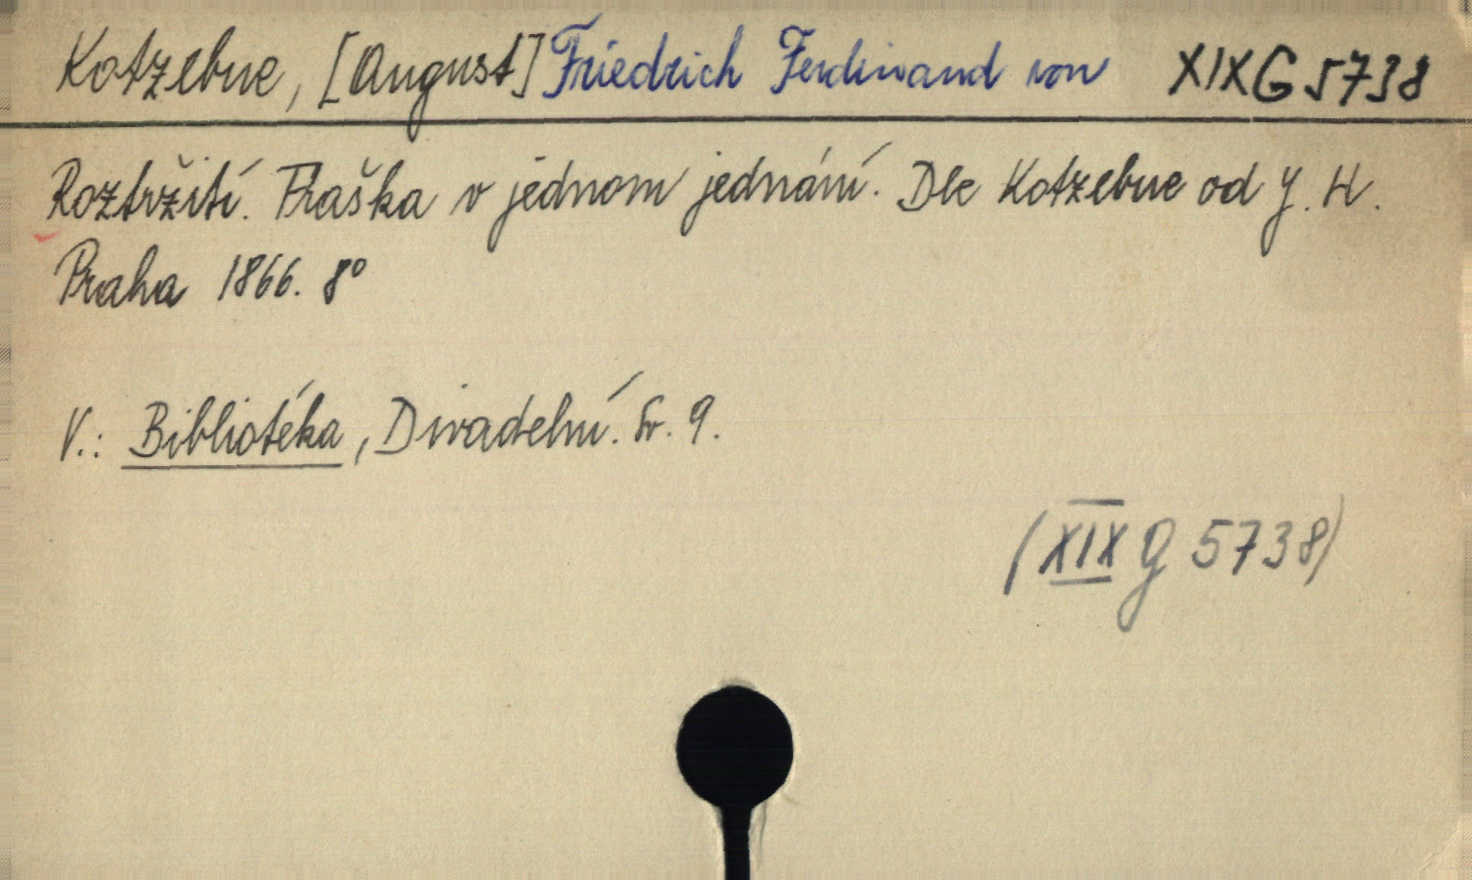 Kotzebue, [August] Friedrich Ferdinand von XIX G 5738
Roztržití. Fraška v jednom jednání. Dle Kotzebue od J. H.
Praha 1866. 8°
V.: Bibliotéka, Divadelní. Sv. 9.
(XIX G 5738)